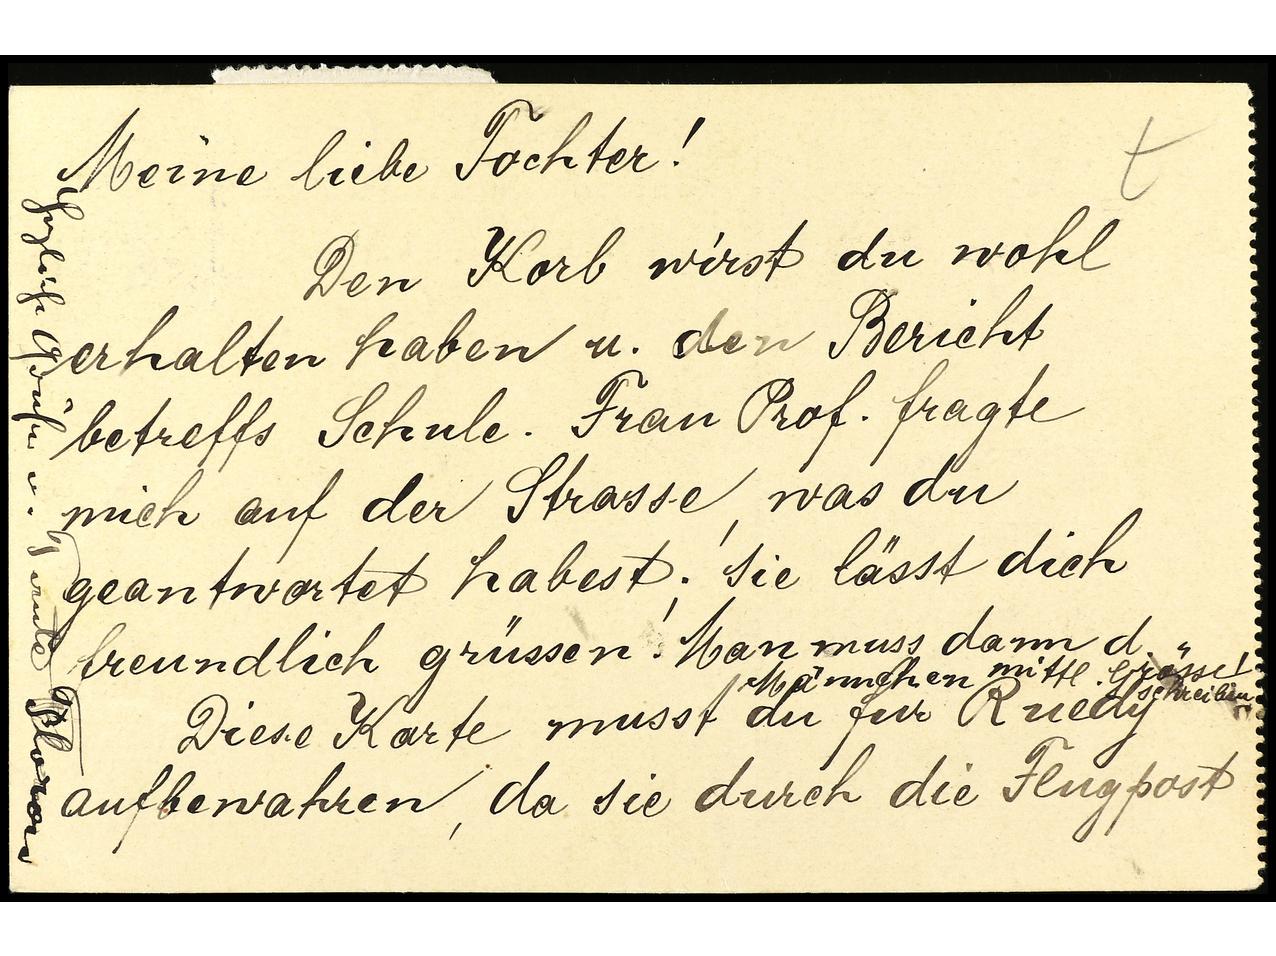 Meine liebe Tochter!
Den Korb wirst du wohl
erhalten haben u. den Bericht
betreffs Schule. Frau Prof. fragte
mich auf der Strasse, was du
geantwortet habest; sie lässt dich
freundlich grüssen! Man muss dann d.
Männchen mittl. Grösse!
schreiben
Diese Karte musst du für Ruedy
aufbewahren, da sie durch die Flugpost
Grüsse u.